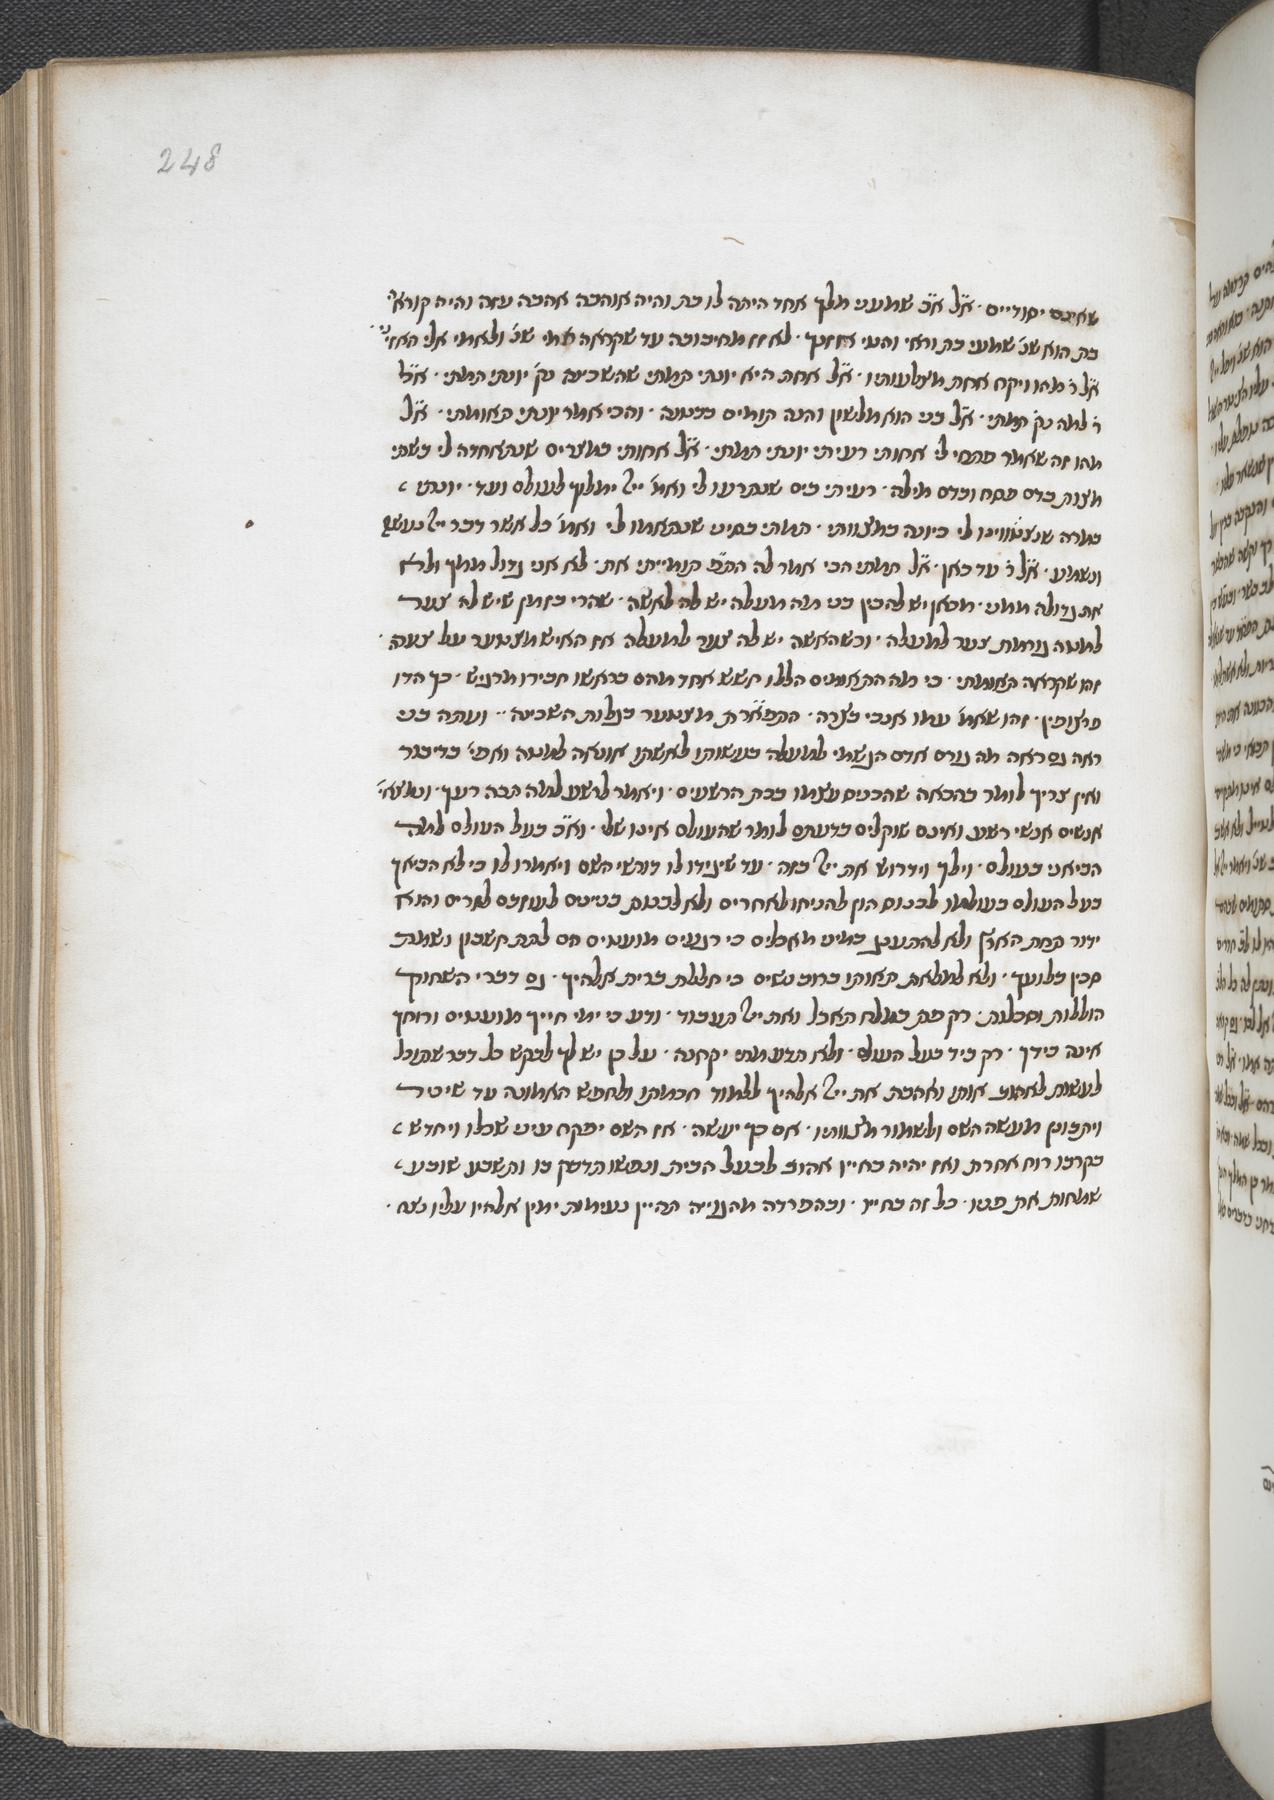 248
שאינם יסודיים · א״ל א״כ שמעני מלך אחד היתה לו בת והיה אוהבה אהבה עזה והיה קורא׳
בת הוא שנ׳ שמעי בת וראי והטי אזנך · לא זז מחיבובה עד שקראה אמי שנ׳ ולאמי אלי האזי׳
א״ל ר׳ מהו ויקח אחת מצלעותיו · א״ל אחת היא יונתי תמתי שהשכינה נק׳ יונתי תמתי · א״ל
ר׳ למה נק׳ תמתי · א״ל בני הוא מלשון והנה תומים בבטנה · והכי אמר יונתי תאומתי · א״ל
מהו זה שאמר פתחי לי אחותי רעיתי יונתי תמתי · א״ל אחותי במצרים שנתאחדה לי בשתי
מצות בדם פסח ובדם מילה · רעיתי בים שנתרעו לי ואמ׳ ייי ימלוך לעולם ועד · יונתי
במרה שנצטווינו לי כיונה במצוותי · תמתי בסיני שנתאמו לי ואמ׳ כל אשר דבר ייי נעשה
ונשמע · א״ל ר׳ עד כאן · א״ל תמתי הכי אמר לה הקב״ה תומייתי את · לא אני גדול ממך ולא
את גדולה ממני · מכאן יש להבין בני מה מעלה יש לה לאשה · שהרי בזמן שיש לה צער
למטה גורמת צער למעלה · וכשהאשה יש לה צער למעלה אז האיש מצטער על צערה ·
זהו שקראה תאומתי · כי מה התאומים הללו חשש אחד מהם בראשו חבירו מרגיש · כך הדו
פרצופין · זהו שאמ׳ עמו אנכי בצרה · התפארת מצטער בגלות השכינה ·· ועתה בני
ראה גם ראה מה גורם אדם הגשמי למעלה בעשותו לאשתו אונאה למטה ואפי׳ בדיבור
ואין צריך לומר בהכאה שהכניס עצמו בכת הרשעים · ויאמר לרשע למה תכה רעך · ונמצאי׳
אנשים אנשי רשע ואינם שוקלים בדעתם לומר שהעולם אינו שלי · וא״כ בעל העולם למה
הביאני בעולם · וילך וידרוש את ייי בזה · עד שיגידו לו דורשי השם ויאמרו לו כי לא הביאך
בעל העולם בעולמו לכנוס הון להניחו לאחרים ולא לבנות בניינים לעוזבם לזרים והוא
ידור תחת הארץ ולא להתענג במיני מאכלים כי רגעים מועטים הם לתת חשבון ושמת
סכין בלועך · ולא למלאת תאותו ברוב נשים כי חללת ברית אלהיך · גם דברי השחוק
הוללות וסכלות · רק פת במלח תאכל ואת ייי תעבוד · ודע כי ימי חייך מועטים ורוחך
אינה בידך · רק ביד בעל העולם · ולא תדע מתי יקחנה · על כן יש לך לבקש כל דבר שתוכל
לעשות לאהוב אותו ואהבת את ייי אלהיך ללמוד חכמתו ולחפש האמונה עד שיכיר
ויתבונן מעשה השם ולשמור מצוותיו · אם כך יעשה · אז השם יפקח עיני שכלו ויחדש
בקרבו רוח אחרת ואז יהיה בחייו אהוב לבעל הבית ונפשו תדבק בו ותשבע שובע
שמחות את פניו · כל זה בחייו · ובהפרדה מהגוייה תהיין נעימות ימין אלהיו עליו נצח ·